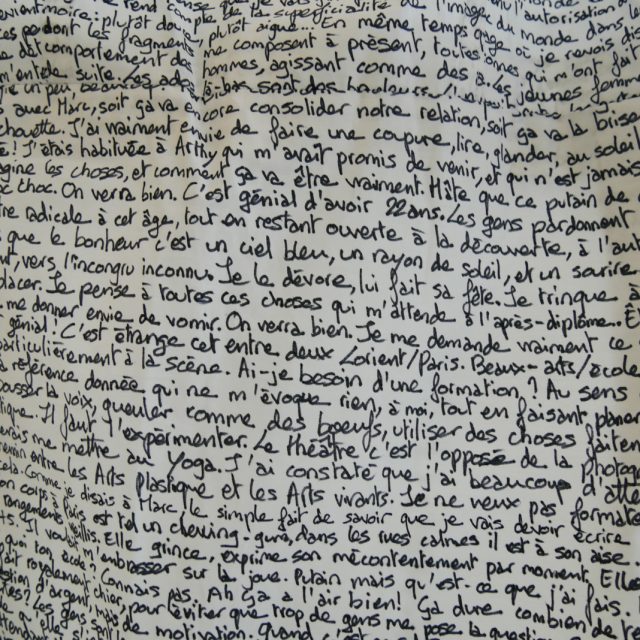 l'image du monde dans
ces pendant les fragments plutôt aigüe... En même temps gage où je revais d'i
de dit comportement de me composent à présent, toutes ames qui m'ont fait
m'entete de suite. Les hommes, agissant comme des Les jeunes femmes
un peu, sont des hauteurs
avec Marc, soit ça va encore consolider notre relation, soit ça va la brise
chouette. J'ai vraiment envie de faire une coupure, lire, glander, au soleil
! J'étais habituée à Arthy, qui m'avait promis de venir, et qui n'est jamais
gine les choses, et comment ça va être vraiment. Hâte que ce putain de
choc. On verra bien. C'est génial d'avoir 22ans. Les gens pardonnent
re radicale à cet âge, tout en restant ouverte à la découverte, à l'au
que le bonheur c'est un ciel bleu, un rayon de soleil, et un sourire
ut, vers l'incongru inconnu. Je le dévore, lui fait sa fête. Je trinque à
placer. Je pense à toutes ces choses qui m'attende à l'après-diplome. E
me donner envie de vomir. On verra bien. Je me demande vraiment ce
génial! C'est étrange cet entre deux Lorient/Paris. Beaux-arts/école
particulièrement à la scène. Ai-je besoin d'une formation? Au sens
référence donnée qui ne m'évoque rien, à moi, tout en faisant planer
ousser la voix, gueuler comme des boeufs, utiliser des choses
tique. Il faut l'expérimenter. Le théâtre c'est l'opposé de la photog
erais me mettre au Yoga. J'ai constaté que j'ai beaucoup d'atte
entre les Arts plastique et les Arts vivants. Je ne veux pas formate
cela. Comme je disais à Marc, le simple fait de savoir que je vais devoir écrire
on corps à Paris est tel un chewing-gum, dans les rues calmes il est à son aise.
rangement Elle grince, exprime son mécontentement par moment. Elle
ts. Il voulait m'embrasser sur la joue. Putain mais qu'est-ce que j'ai fais.
qui ton école? Connais pas. Ah ça a l'air bien! Ça dure combien de t
d'argent pour éviter que trop de gens me pose la question
es? Les gens de motivation. Quand c'est